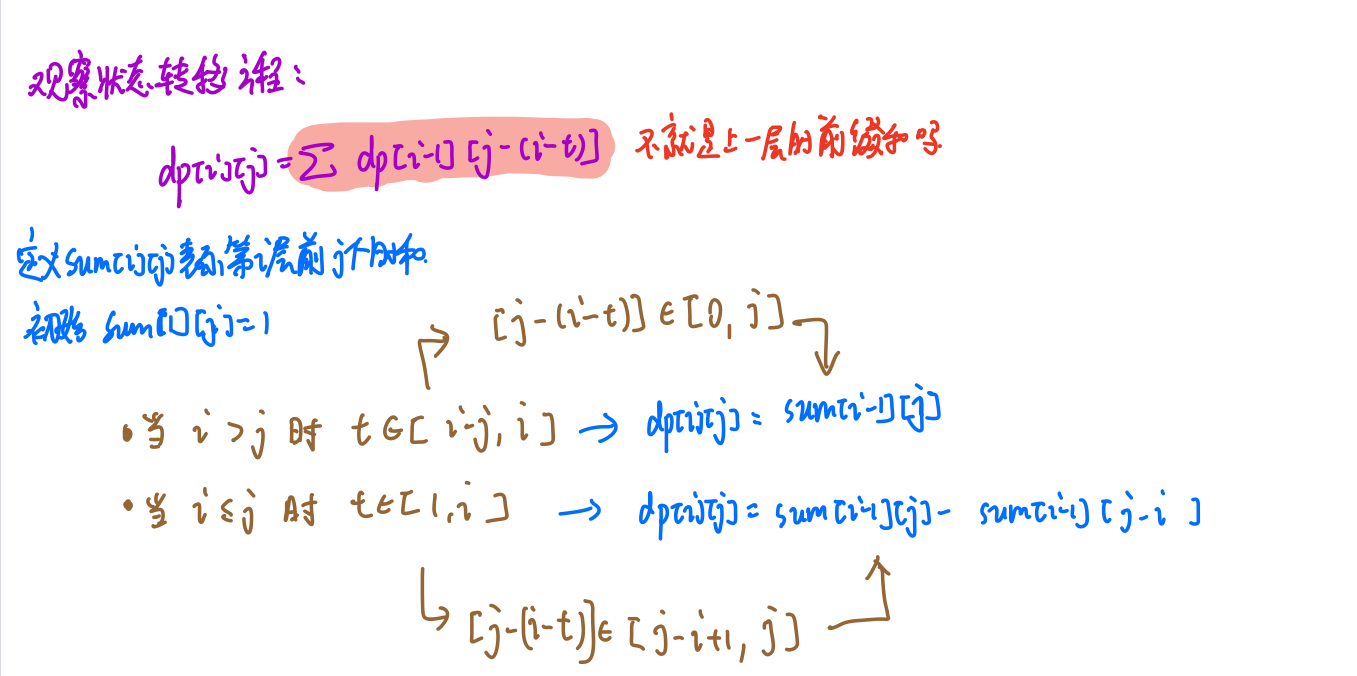 观察状态转移方程：
dp[i][j] = ∑ dp[i-1][j-(i-t)] 不就是上一层的前缀和吗
定义sum[i][j]表示第i层前j个的和.
初始 sum[1][j]=1
[j-(i-t)] ∈ [0, j]
• 当 i > j 时 t ∈ [i-j, i] → dp[i][j] = sum[i-1][j]
• 当 i ≤ j 时 t ∈ [1, i] → dp[i][j] = sum[i-1][j] - sum[i-1][j-i]
[j-(i-t)] ∈ [j-i+1, j]